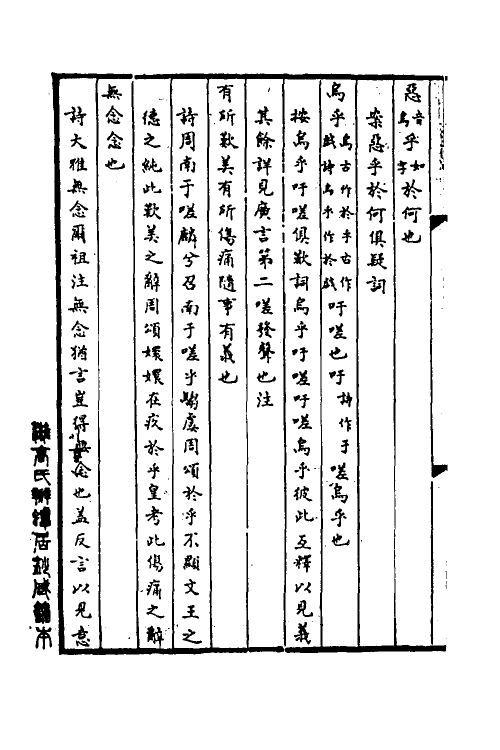 惡音烏乎如字於何也
案惡乎於何俱疑詞
烏乎烏古作於乎古作戲詩烏乎作於戲吁嗟也吁詩作于嗟烏乎也
按烏乎吁嗟俱歎詞烏乎吁嗟吁嗟烏乎彼此互釋以見義
其餘詳見廣言第二嗟發聲也注
有所歎美有所傷痛隨事有義也
詩周南于嗟麟兮召南于嗟乎騶虞周頌於乎不顯文王之
德之純此歎美之辭周頌嬛嬛在疚於乎皇考此傷痛之辭
無念念也
詩大雅無念爾祖注無念猶言豈得無念也蓋反言以見意
濰高氏辨蟫居鈔藏本